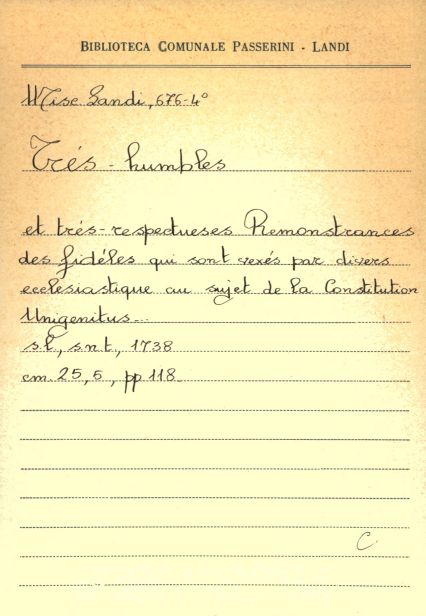 BIBLIOTECA COMUNALE PASSERINI - LANDI
Misc. Landi, 676-4°
Trés - humples
et trés-respectueses Remonstrances
des fidéles qui sont vexés par divers
ecclesiastique au sujet de la Constitution
Unigenitus...
s.l., s.n.t., 1738
cm. 25,5, pp. 118.
C.